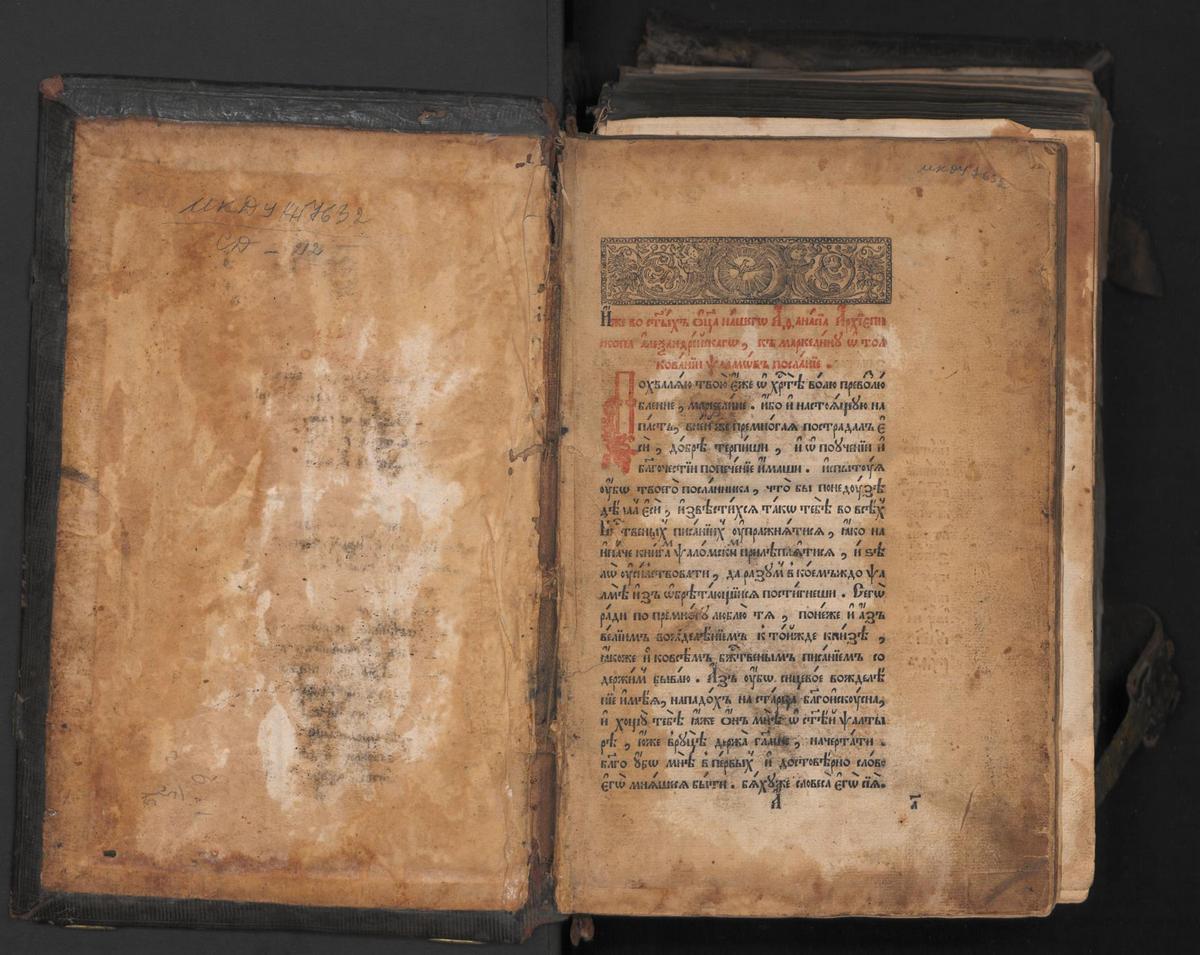 МКДУ КП 7632
СД - 92
МКДУ 7632
И҆́же во ст҃ы́хъ ѻ҆ц҃а̀ на́шегѡ А҆ѳана́сїа А҆рхїепи
скопа а҆леѯандрі́йскагѡ, къ маркелі́нꙋ ѡ тол
кова́нїи ѱалмѡ́въ посла́нїе.
Похвалѧ́ю твою̀ є҆́же ѡ хрⷭ҇тѣ̀ во́лю преволю́
бленне, маркелли́не. и҆́бо и҆ настоѧ́щꙋю на
па́сть, вне́й же премно́гаѧ пострада́лъ є҆
сѝ, до́брѣ терпи́ши, и҆ ѡ поꙋче́нїи и҆
бл҃гоче́стїи попече́нїе и҆́маши. и҆спытꙋ́ѧ
ᲂу҆́бѡ твоего̀ посла́нника, что̀ бы по недꙋ́зѣ
дѣ́лалъ є҆сѝ, и҆звѣсти́хсѧ та́кѡ тебѣ̀ во всѣ́хъ
бж҃твеныхъ писа́нїихъ ᲂу҆пражнѧ́тисѧ, ꙗ҆́кѡ на
и҆па́че кни́гамъ ѱало́мскимъ прилѣплѧ́тисѧ, и҆ ѕѣ
лѡ̀ ᲂу҆си́лствовати, да ра́зꙋмъ в ко́емъждо ѱа
лмѣ̀ и҆з̾ѡбрѣта́ющїисѧ пости́гнеши. Сегѡ̀
ра́ди по премно́гꙋ люблю́ тѧ, поне́же и҆ а҆́зъ
ве́лїимъ вожделѣ́нїемъ к то́йжде кни́зѣ,
ꙗ҆́коже и҆ ковсѣ́мъ бж҃твенымъ писа́нїемъ со
держи́мъ быва́ю. А҆́зъ ᲂу҆́бѡ сицево́е вожделѣ́
нїе и҆мѣ́ѧ, нападо́хъ на ста́рца бл҃гоискꙋ́сна,
и҆ хощꙋ̀ тебѣ̀ ꙗ҆́же ѻ҆́нъ мнѣ̀ ѡ ст҃ѣ́й ѱалты
рѣ̀, ю҆́же врꙋцѣ̀ держа̀ гл҃аше, начерта́ти.
бл҃го ᲂу҆́бѡ мнѣ̀ в пе́рвыхъ и҆ достовѣ́рно сло́во
є҆гѡ̀ мнѧ́шесѧ бы́ти. бѧ́хꙋ же словеса̀ є҆гѡ̀ сїѧ̀.
А҆ а҃